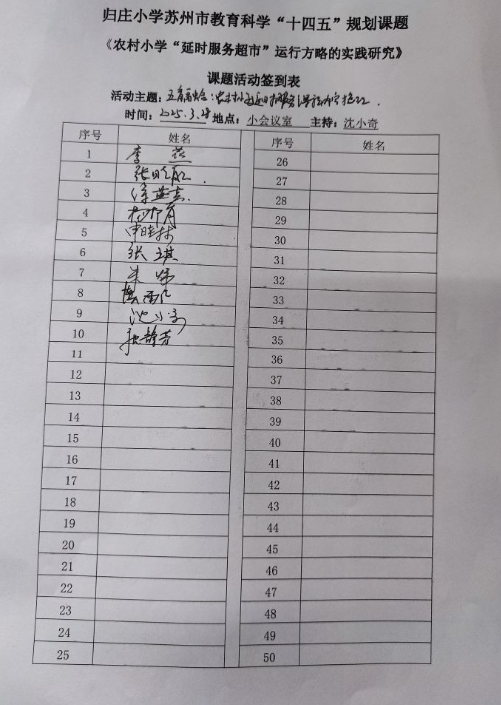 归庄小学苏州市教育科学“十四五”规划课题
《农村小学“延时服务超市”运行方略的实践研究》
课题活动签到表
活动主题：
时间：2025.3.28 地点：小会议室 主持：沈小奇
序号 姓名 序号 姓名
1 李 26
2 张 27
3 徐燕 28
4 29
5 30
6 张琪 31
7 朱 32
8 33
9 沈小奇 34
10 张静芳 35
11 36
12 37
13 38
14 39
15 40
16 41
17 42
18 43
19 44
20 45
21 46
22 47
23 48
24 49
25 50